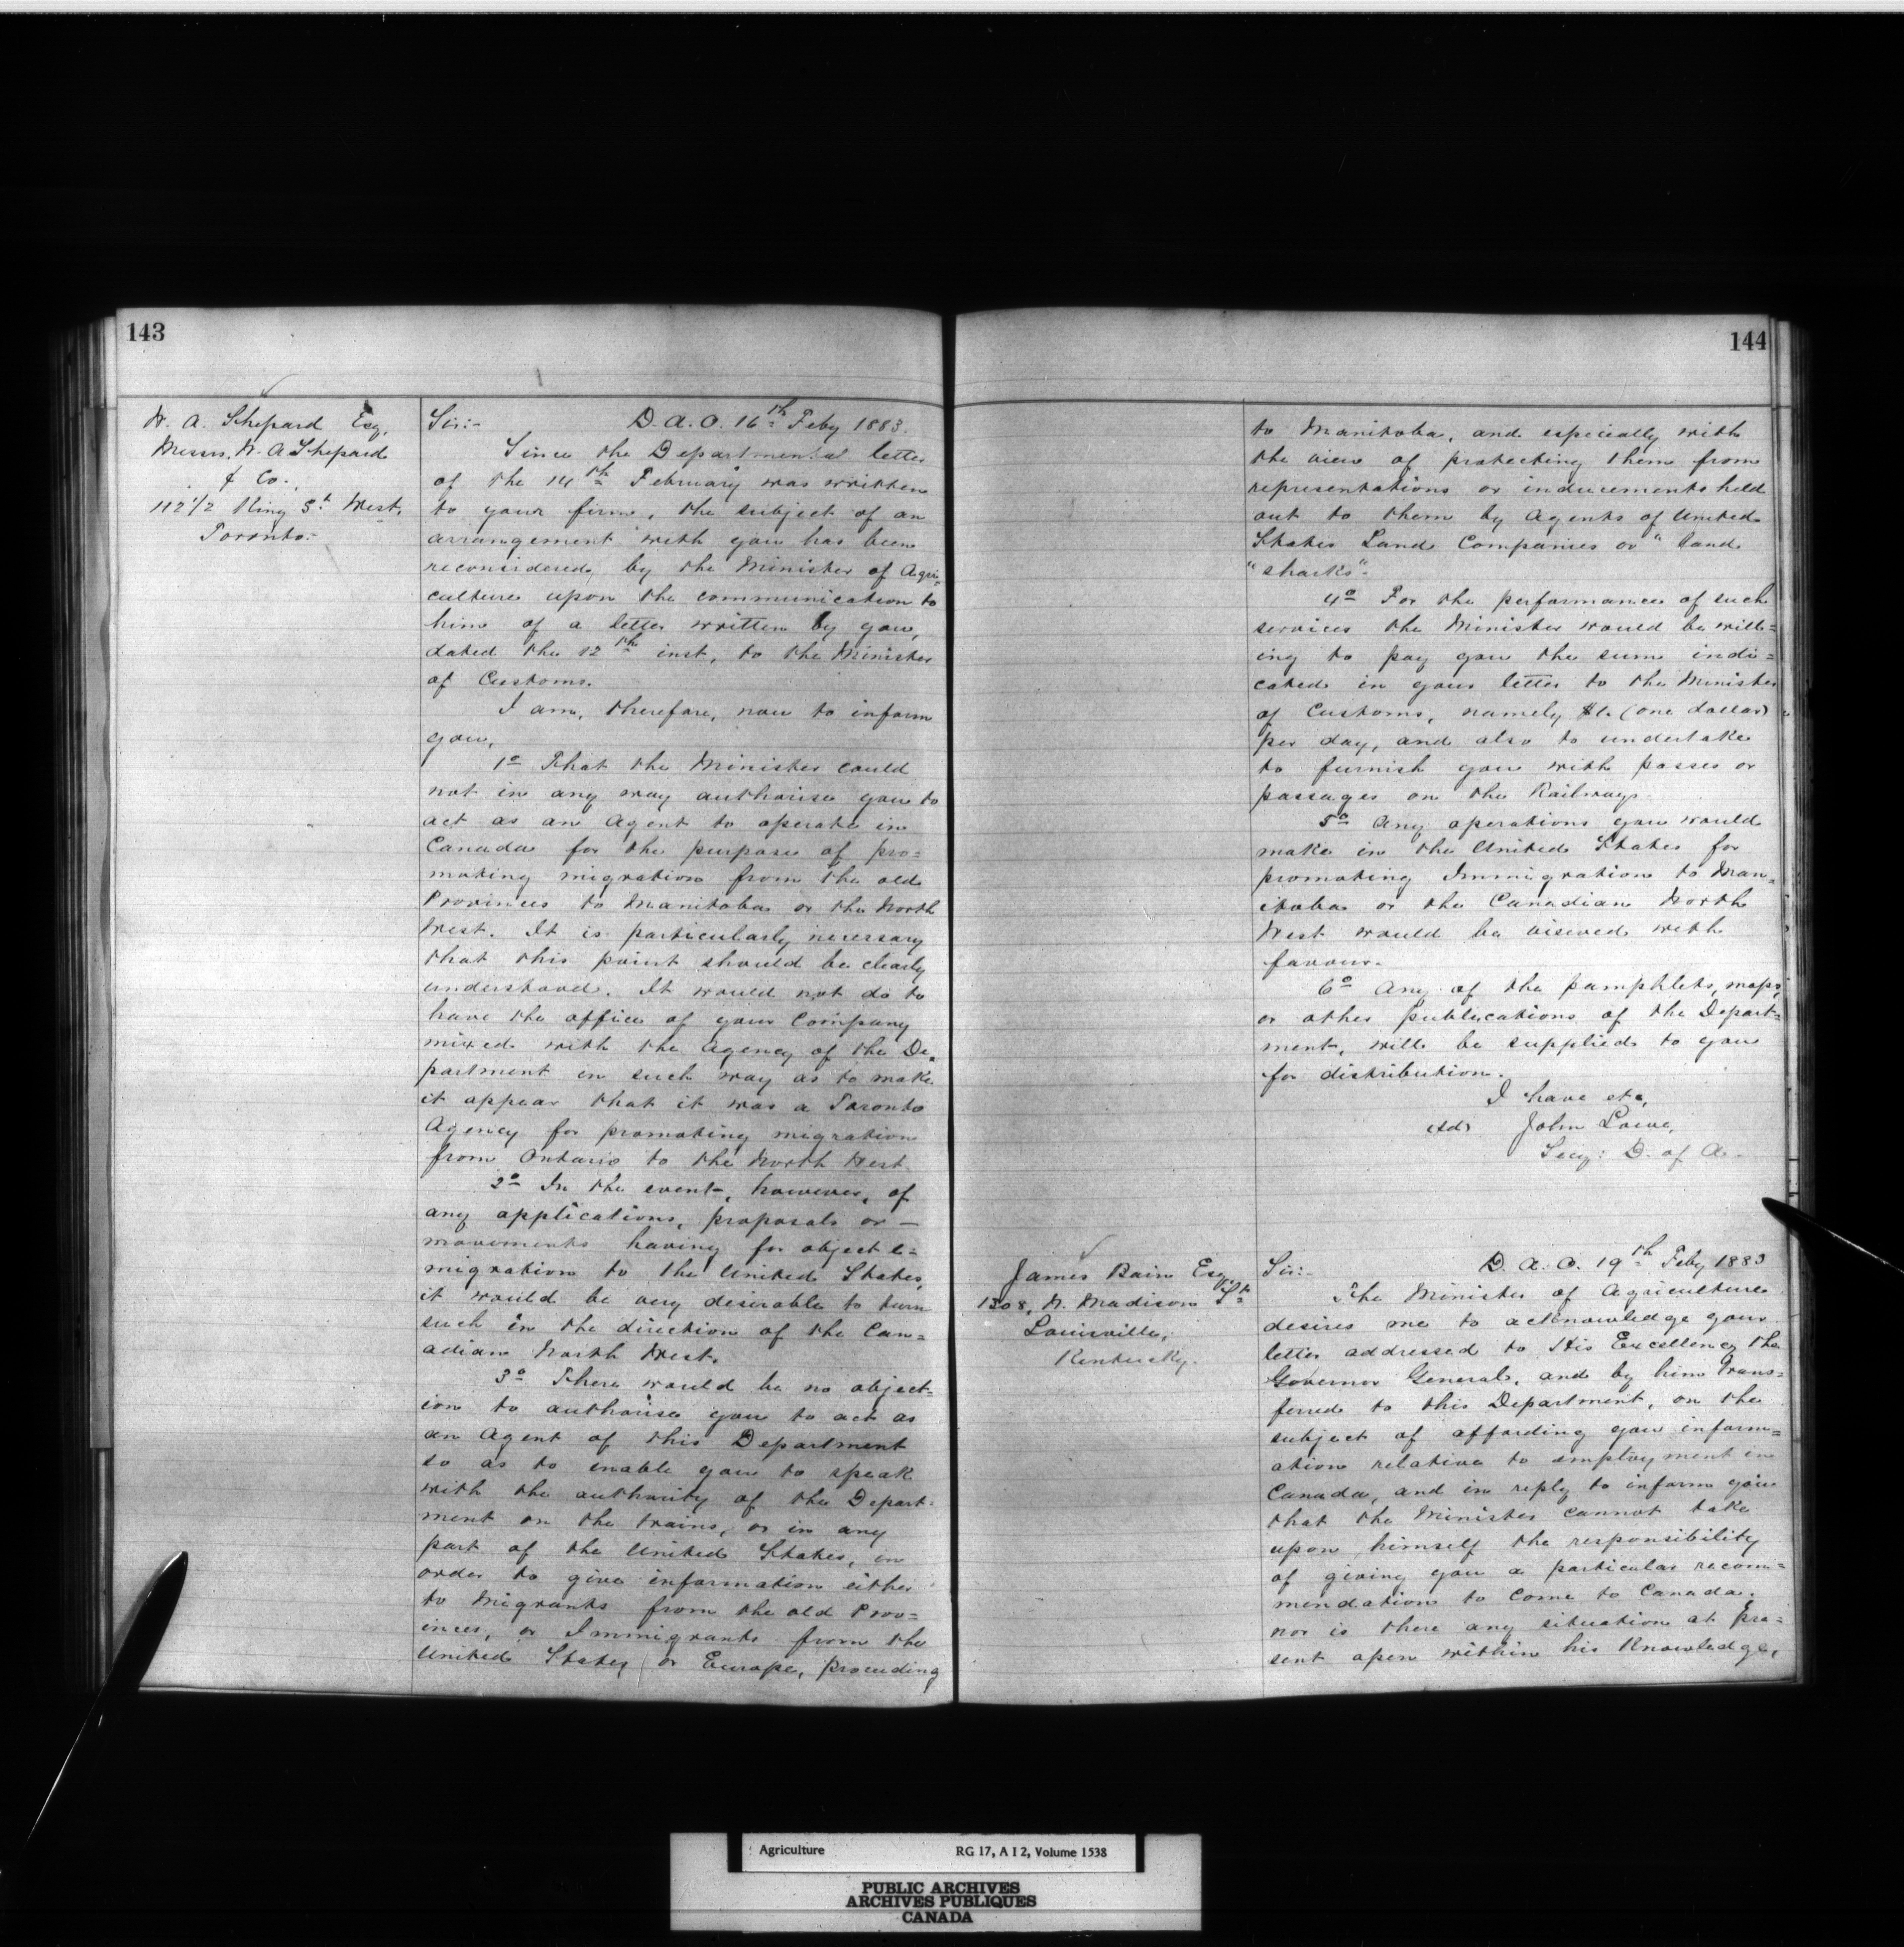 143
W. A. Shepard Esq,
Messrs. W. A Shepard
& Co.,
112 1/2 King St West,
Toronto.-
Sir:- D. A. O. 16th Feby 1883.
Since the Departmental letter
of the 14th February was written
to your firm, the subject of an
arrangement with you has been
reconsidered, by the Minister of Agri-
culture upon the communication to
him of a letter written by you,
dated the 12th inst, to the Minister
of Customs.
I am, therefore, now to inform
you,
1o That the Minister could
not in any way authorise you to
act as an Agent to operate in
Canada for the purpose of pro=
moting migration from the old
Provinces to Manitoba or the North
West. It is particularly necessary
that this point should be clearly
understood. It would not do to
have the office of your Company
mixed with the Agency of the De=
partment in such way as to make
it appear that it was a Toronto
Agency for promoting migration
from Ontario to the North West.
2o In the event, however, of
any applications, proposals or —
movements having for object e=
migration to the United States,
it would be very desirable to turn
such in the direction of the Can=
adian North West.
3o There would be no object=
ion to authorise you to act as
an Agent of this Department
so as to enable you to speak
with the authority of the Depart=
ment on the trains, or in any
part of the United States, in
order to give information either
to Migrants from the old Prov=
inces, or Immigrants from the
United States, or Europe, proceeding
144
to Manitoba, and especially with
the view of protecting them from
representations or inducements held
out to them by Agents of United
States Land Companies or "land
"sharks".
4o For the performance of such
services the Minister would be will=
ing to pay you the sum indi=
cated in your letter to the Minister
of Customs, namely $1. (one dollar)
per day, and also to undertake
to furnish you with passes or
passages on the Railways.
5o Any operations you would
make in the United States for
promoting Immigration to Man=
itoba or the Canadian North
West would be viewed with
favour.
6o Any of the pamphlets, maps,
or other publications of the Depart=
ment, will be supplied to you
for distribution.
I have etc,
(sd) John Lowe,
Secy: D. of A.
James Bain Esq
1508, W. Madison St
Louisville,
Kentucky.
Sir:- D. A. O. 19th Feby 1883
The Minister of Agriculture
desires me to acknowledge your
letter addressed to His Excellency the
Governor General, and by him trans=
ferred to this Department, on the
subject of affording you inform=
ation relative to employment in
Canada, and in reply to inform you
that the Minister cannot take
upon himself the responsibility
of giving you a particular recom=
mendation to come to Canada.
nor is there any situation at pre=
sent open within his Knowledge,
Agriculture RG 17, A I 2, Volume 1538
PUBLIC ARCHIVES
ARCHIVES PUBLIQUES
CANADA